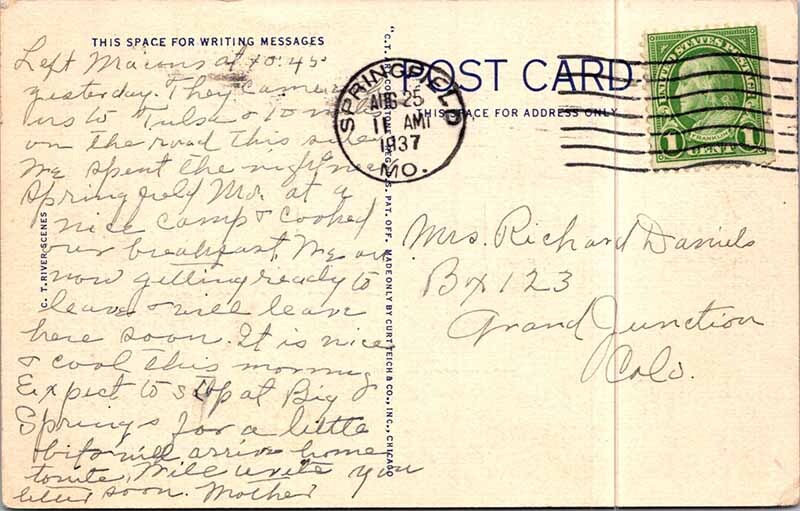 THIS SPACE FOR WRITING MESSAGES
Left Macons at 10:45
yesterday. They came
us to Tulsa & 10 miles
on the road this side
We spent the night near
Springfield Mo. at a
nice camp & cooked
our breakfast. We are
now getting ready to
leave & will leave
here soon. It is nice
& cool this morning
Expect to stop at Big
Springs for a little
will arrive home
tonite, Will write you
letter soon. Mother
C. T. RIVER SCENES
"C.T. PAT. OFF. MADE ONLY BY CURT TEICH & CO., INC., CHICAGO
SPRINGFIELD
AUG 25
11 AM
1937
MO.
POST CARD
THIS SPACE FOR ADDRESS ONLY
UNITED STATES POSTAGE
FRANKLIN
1 CENT 1
Mrs. Richard Daniels
Box 123
Grand Junction
Colo.